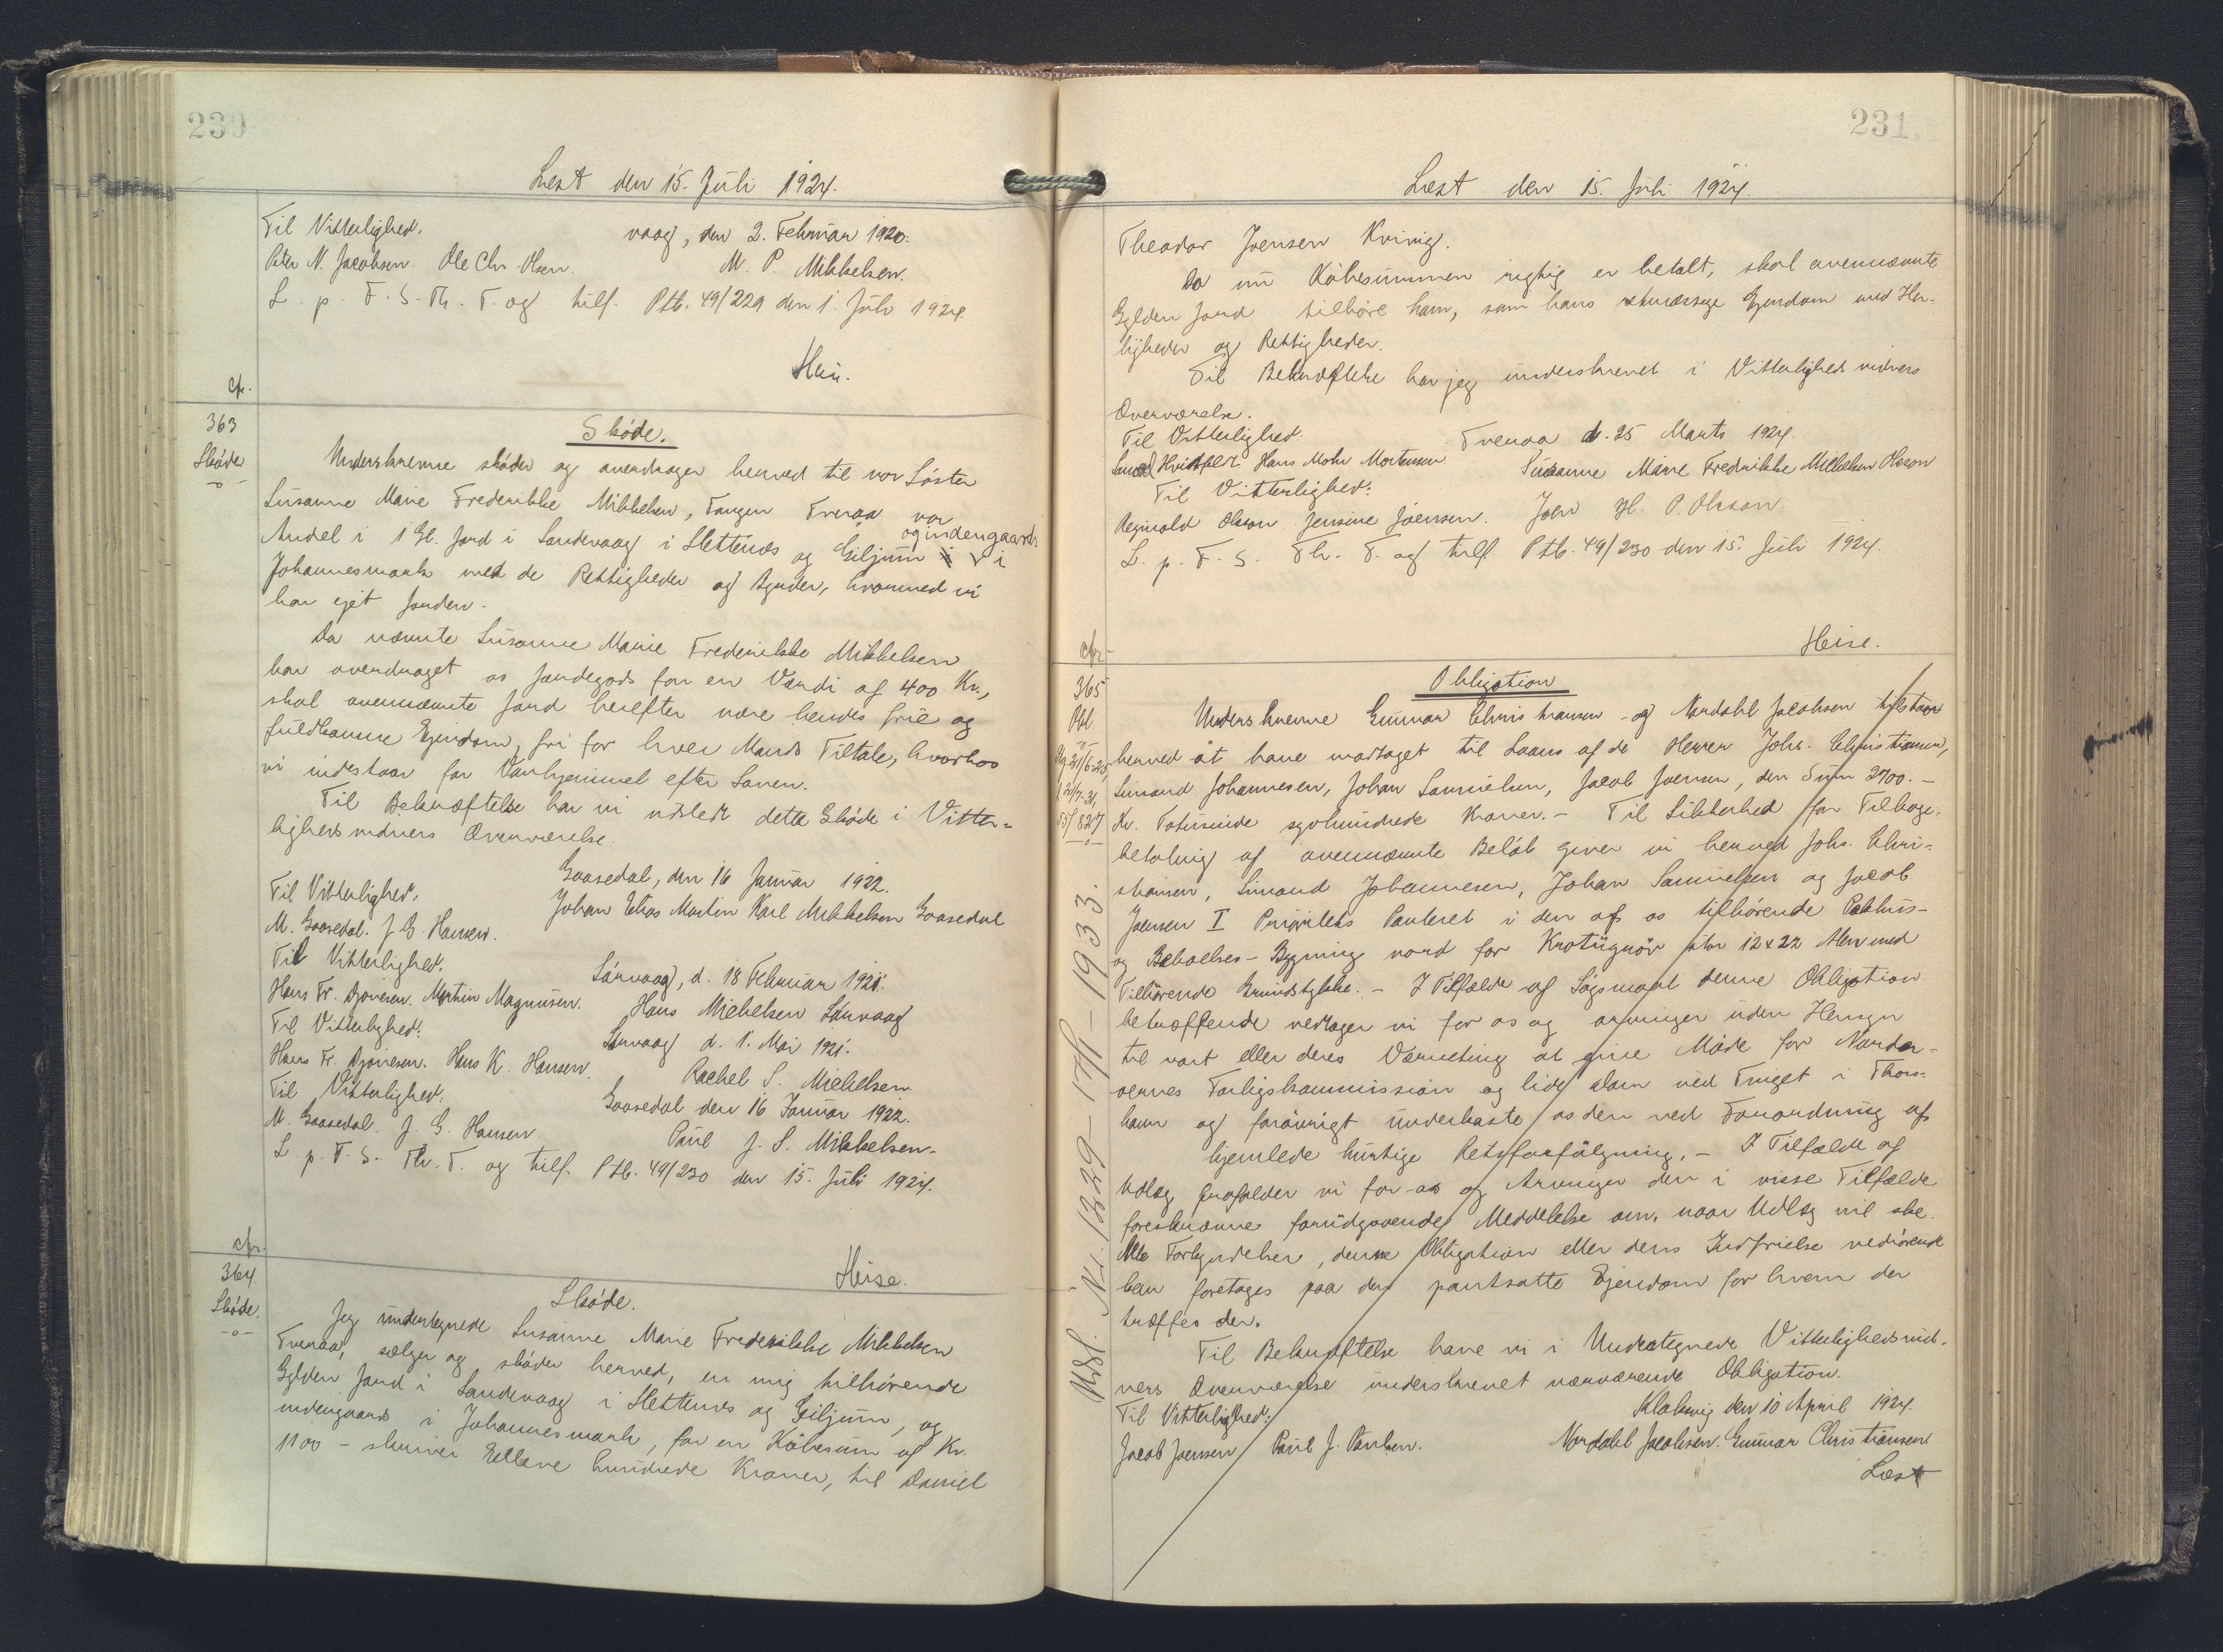 230
Læst den 15. Juli 1924.
Til Vitterlighed. vaag, den 2. Februar 1920.
Peter N. Jacobsen. Ole Chr. Olsen. M. P. Mikkelsen.
L. p. F. S. Th. T. og tilf. Ptb. 49/229 den 1. Juli 1924.
cfr.
363
Skøde
-o-
Skøde.
Underskrevne skøder og overdrager herved til vor Søster
Susanne Marie Frederikke Mikkelsen, Tangen Tveraa vor
Andel i 1 Gl. Jord i Sandevaag i Slettenæs og Giljum og indengaards i
Johannesmark med de Rettigheder og Byrder, hvormed vi
har ejet Jorden.
Da nævnte Susanne Marie Frederikke Mikkelsen
har overdraget os Jordegods for en Værdi af 400 Kr.,
skal ovennævnte Jord herefter være hendes frie og
fuldkomne Ejendom, fri for hver Mands Tiltale, hvorhos
vi indestaar for Vanhjemmel efter Loven.
Til Bekræftelse har vi udstedt dette Skøde i Vitter=
lighedsvidners Overværelse
Gaasedal, den 16 Januar 1922.
Til Vitterlighed. Johan Elias Martin Karl Mikkelsen Gaasedal
M. Gaasedal. J. G. Hansen.
Til Vitterlighed. Sørvaag, d. 18 Februar 1921.
Hans Fr. Djonesen. Martin Magnusen. Hans Mikkelsen Sørvaag
Til Vitterlighed. Sørvaag d. 1. Mai 1921.
Hans Fr. Djonesen. Hans K. Hansen. Rachel S. Mikkelsen
Til Vitterlighed. Gaasedal den 16 Januar 1922.
M. Gaasedal. J. G. Hansen. Paul J. S. Mikkelsen.
L. p. F. S. Th. T. og tilf. Ptb. 49/230 den 15. Juli 1924.
cfr. Heise.
364.
Skøde.
-o-
Skøde.
Jeg undertegnede Susanne Marie Frederikke Mikkelsen
Tveraa, sælger og skøder herved, en mig tilhørende
Gylden Jord i Sandevaag i Slettenæs og Giljum, og
indengaards i Johannesmark, for en Købesum af Kr.
1100 - skriver Elleve hundrede Kroner, til Daniel
231.
Læst den 15. Juli 1924.
Theodor Joensen Kvivig.
Da nu Købesummen rigtig er betalt, skal ovennævnte
Gylden Jord tilhøre ham, som hans retmæssige Ejendom med Her-
ligheder og Rettigheder.
Til Bekræftelse har jeg underskrevet i Vitterlighedsvidners
Overværelse.
Til Vitterlighed. Tveraa d. 25 Marts 1924.
Hans Mohr Mortensen Susanne Marie Frederikke Mikkelsen Olsson
Til Vitterlighed:
Reginald Olsson. Jensine Joensen. Joen H. P. Olsson
L. p. F. S. Th. T. og tilf. Ptb. 49/230 den 15. Juli 1924.
cfr. Heise.
365
Obl.
-o-
Obligation
Underskrevne Gunnar Christiansen og Nordahl Jacobsen tilstaar
herved at have modtaget til Laans af de Herrer Johs. Christiansen,
Simand Johannesen, Johan Samuelsen, Jacob Joensen, den Sum 2700.-
55/827 Kr. Totusinde syvhundrede Kroner. - Til Sikkerhed for Tilbage-
betaling af ovennævnte Beløb giver vi herved Johs. Chri-
stiansen, Simand Johannesen, Johan Samuelsen og Jacob
Joensen I Prioritets Panteret i den af os tilhørende Pakhus-
og Beboelses-Bygning nord for Krotugnør stor 12x22 Alen med
Tilhørende Grundstykke. - I Tilfælde af Søgsmaal denne Obligation
betræffende vedtager vi for os og arvinger uden Hensyn
til vort eller deres Værneting at give Møde for Norder-
øernes Forligskommission og lide dom ved Tinget i Thors-
havn og forøvrigt underkaste os den ved Forordning af
hjemlede hurtige Retsforfølgning. - I Tilfælde af
Udlæg frafalder vi for os og Arvinger den i visse Tilfælde
foreskrevne forudgaaende Meddelelse om, naar Udlæg vil ske.
Alle Forkyndelser, denne Obligation eller dens Indfrielse vedrørende
kan foretages paa den pantsatte Ejendom for hvem der
træffes der.
Til Bekræftelse have vi i Undertegnede Vitterlighedsvid-
ners Overværelse underskrevet nærværende Obligation.
Til Vitterlighed: Klaksvig den 10 April 1924.
Jacob Joensen Paul J. Poulsen. Nordahl Jacobsen. Gunnar Christiansen
Læst
Udsl. Nr. 1229 - 17/1 - 1933.